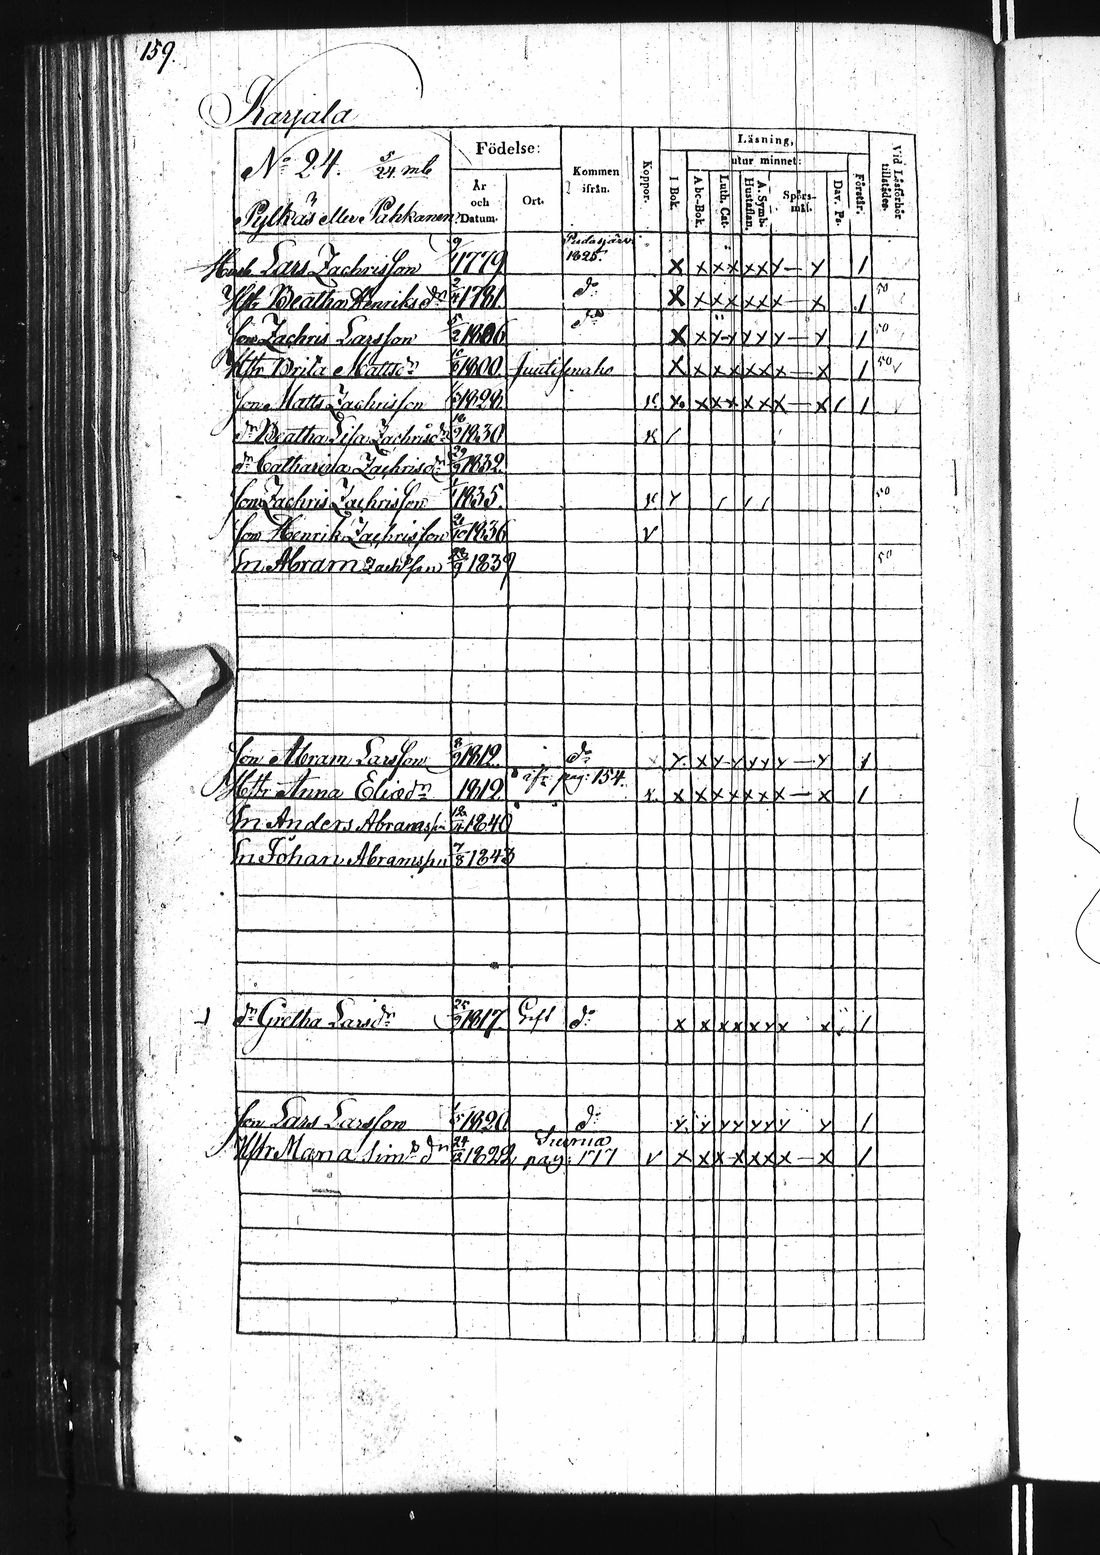 159.
Karjala
No 24. 5/24 mb
Pylkäs eller Pahkanen
Födelse:
År och Datum.
Ort.
Kommen ifrån.
Koppor.
Läsning,
utur minnet:
I Bok.
Abc-Bok.
Luth. Cat.
A. Symb. Hustaflan.
Spörsmål.
Dav. Ps.
Förstår.
Vid Läsförhör tillstädes.
Lars Zachrisson 1779 1825. X x x x x x y — y 1
Hr Beatha Henriksdr 2/4 1781 do X x x x x x x — x 1 50
Son Zachris Larsson 5/2 1806 do X x y y y y y — y 1 50
Hr Brita Mattsdr 1800 X x x x x x x — x 1 50
Son Matts Zachrisson 1828 x x x x x x x — x 1
dr Beatha Lisa Zachrisdr 1830
dr Catharina Zachrisdr 1832
Son Zachris Zachrisson 1835. 50
Son Henrik Zachrisson 1836 v
Sn Abram Zachsson 1839 50
Son Abram Larsson 8/9 1812 do y x y y y y y — y 1
Hr Anna Eliædr 1812 pag: 154. x x x x x x x x — x 1
Sn Anders Abramsson 1840
Sn Johan Abramsson 7/8 1843
dr Gretha Larsdr 25/9 1817 Gift do x x x x x y x x 1
Son Lars Larsson 1820 do y y y y y y y y 1
Hr Maria Simsdr 1822 pag: 177 v x x x x x x x — x 1